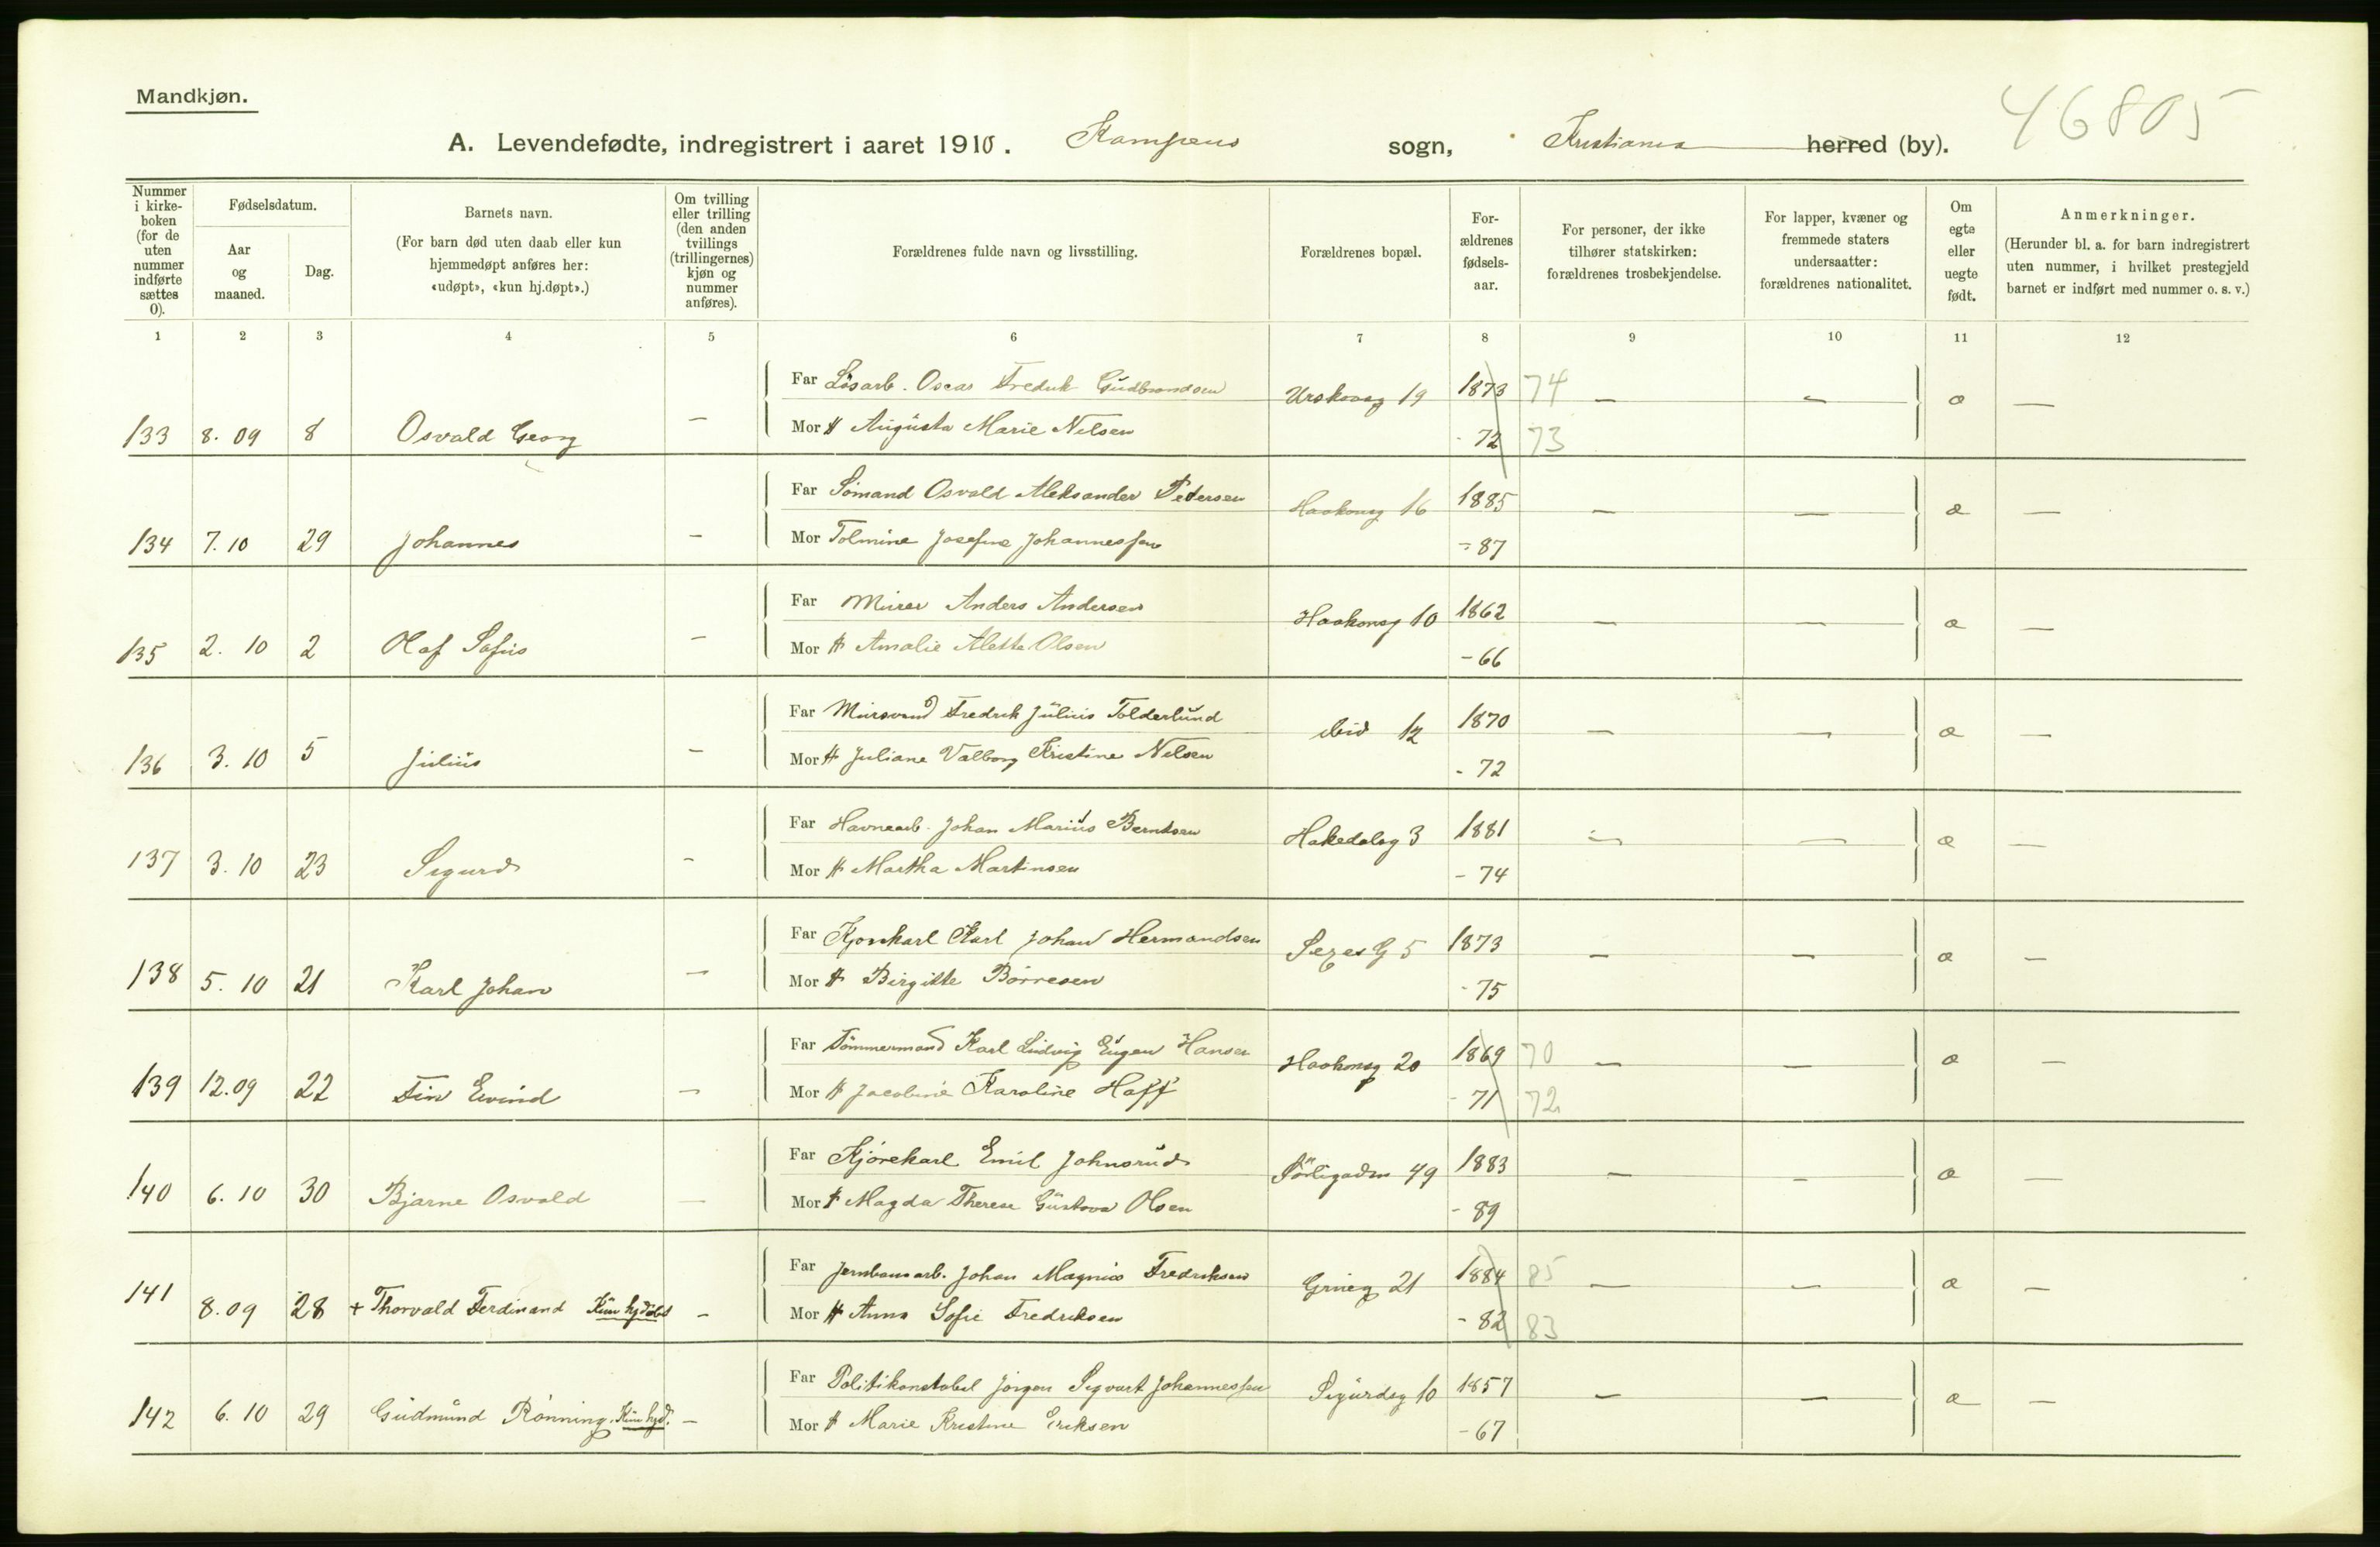 Mandkjøn.
46805
A. Levendefødte, indregistrert i aaret 1910. Kampens sogn, Kristiania herred (by).
Nummer i kirke-boken (for de uten nummer indførte sættes 0).
Fødselsdatum.
Aar og maaned.
Dag.
Barnets navn.
(For barn død uten daab eller kun hjemmedøpt anføres her: «udøpt», «kun hj.døpt».)
Om tvilling eller trilling (den anden tvillings (trillingernes) kjøn og nummer anføres).
Forældrenes fulde navn og livsstilling.
Forældrenes bopæl.
For-ældrenes fødsels-aar.
For personer, der ikke tilhører statskirken: forældrenes trosbekjendelse.
For lapper, kvæner og fremmede staters undersaatter: forældrenes nationalitet.
Om egte eller uegte født.
Anmerkninger.
(Herunder bl. a. for barn indregistrert uten nummer, i hvilket prestegjeld barnet er indført med nummer o. s. v.)
1 2 3 4 5 6 7 8 9 10 11 12
Far Løsarb. Oscar Fredrik Gudbrandsen Urskovsg 19 1873 74 — — —
133 8. 09 8 Osvald Georg — Mor H Augusta Marie Nelsen - 72 73
Far Sömand Osvald Aleksander Petersen Haakonsg 16 1885 — — æ —
134 7. 10 29 Johannes — Mor Tolmine Josefine Johannessen - 87
Far Murer Anders Andersen Haakonsg 10 1862 — — æ —
135 2. 10 2 Olaf Sofus — Mor H Amalie Alette Olsen - 66
Far Mursvend Fredrik Julius Tolderlund ibid 12 1870 — — æ —
136 3. 10 5 Julius — Mor H Juliane Valborg Kristine Nelsen - 72
Far Havnearb. Johan Marius Berntsen Hakedalsg 3 1881 — — æ —
137 3. 10 23 Sigurd — Mor H Martha Martinsen - 74
Far Kjørekarl Karl Johan Hermandsen G 5 1873 — — æ —
138 5. 10 21 Karl Johan — Mor H Birgitte Börresen - 75
Far Tömmermand Karl Ludvig Eugen Hansen Haakonsg 20 1869 70 — — æ —
139 12.09 22 Fin Eivind — Mor H Jacobine Karoline Haff - 71 72
Far Kjörekarl Emil Johnsrud Sörligaden 49 1883 — — æ —
140 6. 10 30 Bjarne Osvald — Mor H Magda Therese Gustava Olsen - 89
Far Jernbanearb. Johan Magnus Fredriksen 21 1884 85 — — æ —
141 8.09 28 + Thorvald Ferdinand Kun hjdöbt — Mor H Anna Sofie Fredriksen - 82 83
Far Politikonstabel Jörgen Sigvart Johannessen Sigurdsg 10 1857 — — æ —
142 6. 10 29 Gudmund Rönning. Kun hjd. — Mor H Marie Kristine Eriksen - 67